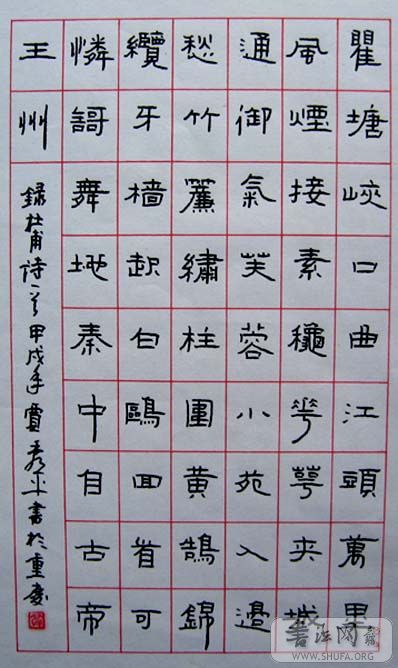 瞿塘峽口曲江頭萬里
風煙接素穐花萼夾城
通御氣芙蓉小苑入邊
愁竹簾繡柱圍黃鵠錦
纜牙檣起白鷗囬首可
憐謌舞地秦中自古帝
王州
錄杜甫诗一首甲戌年秀平書於重慶
書法网
WWW.SHUFA.ORG